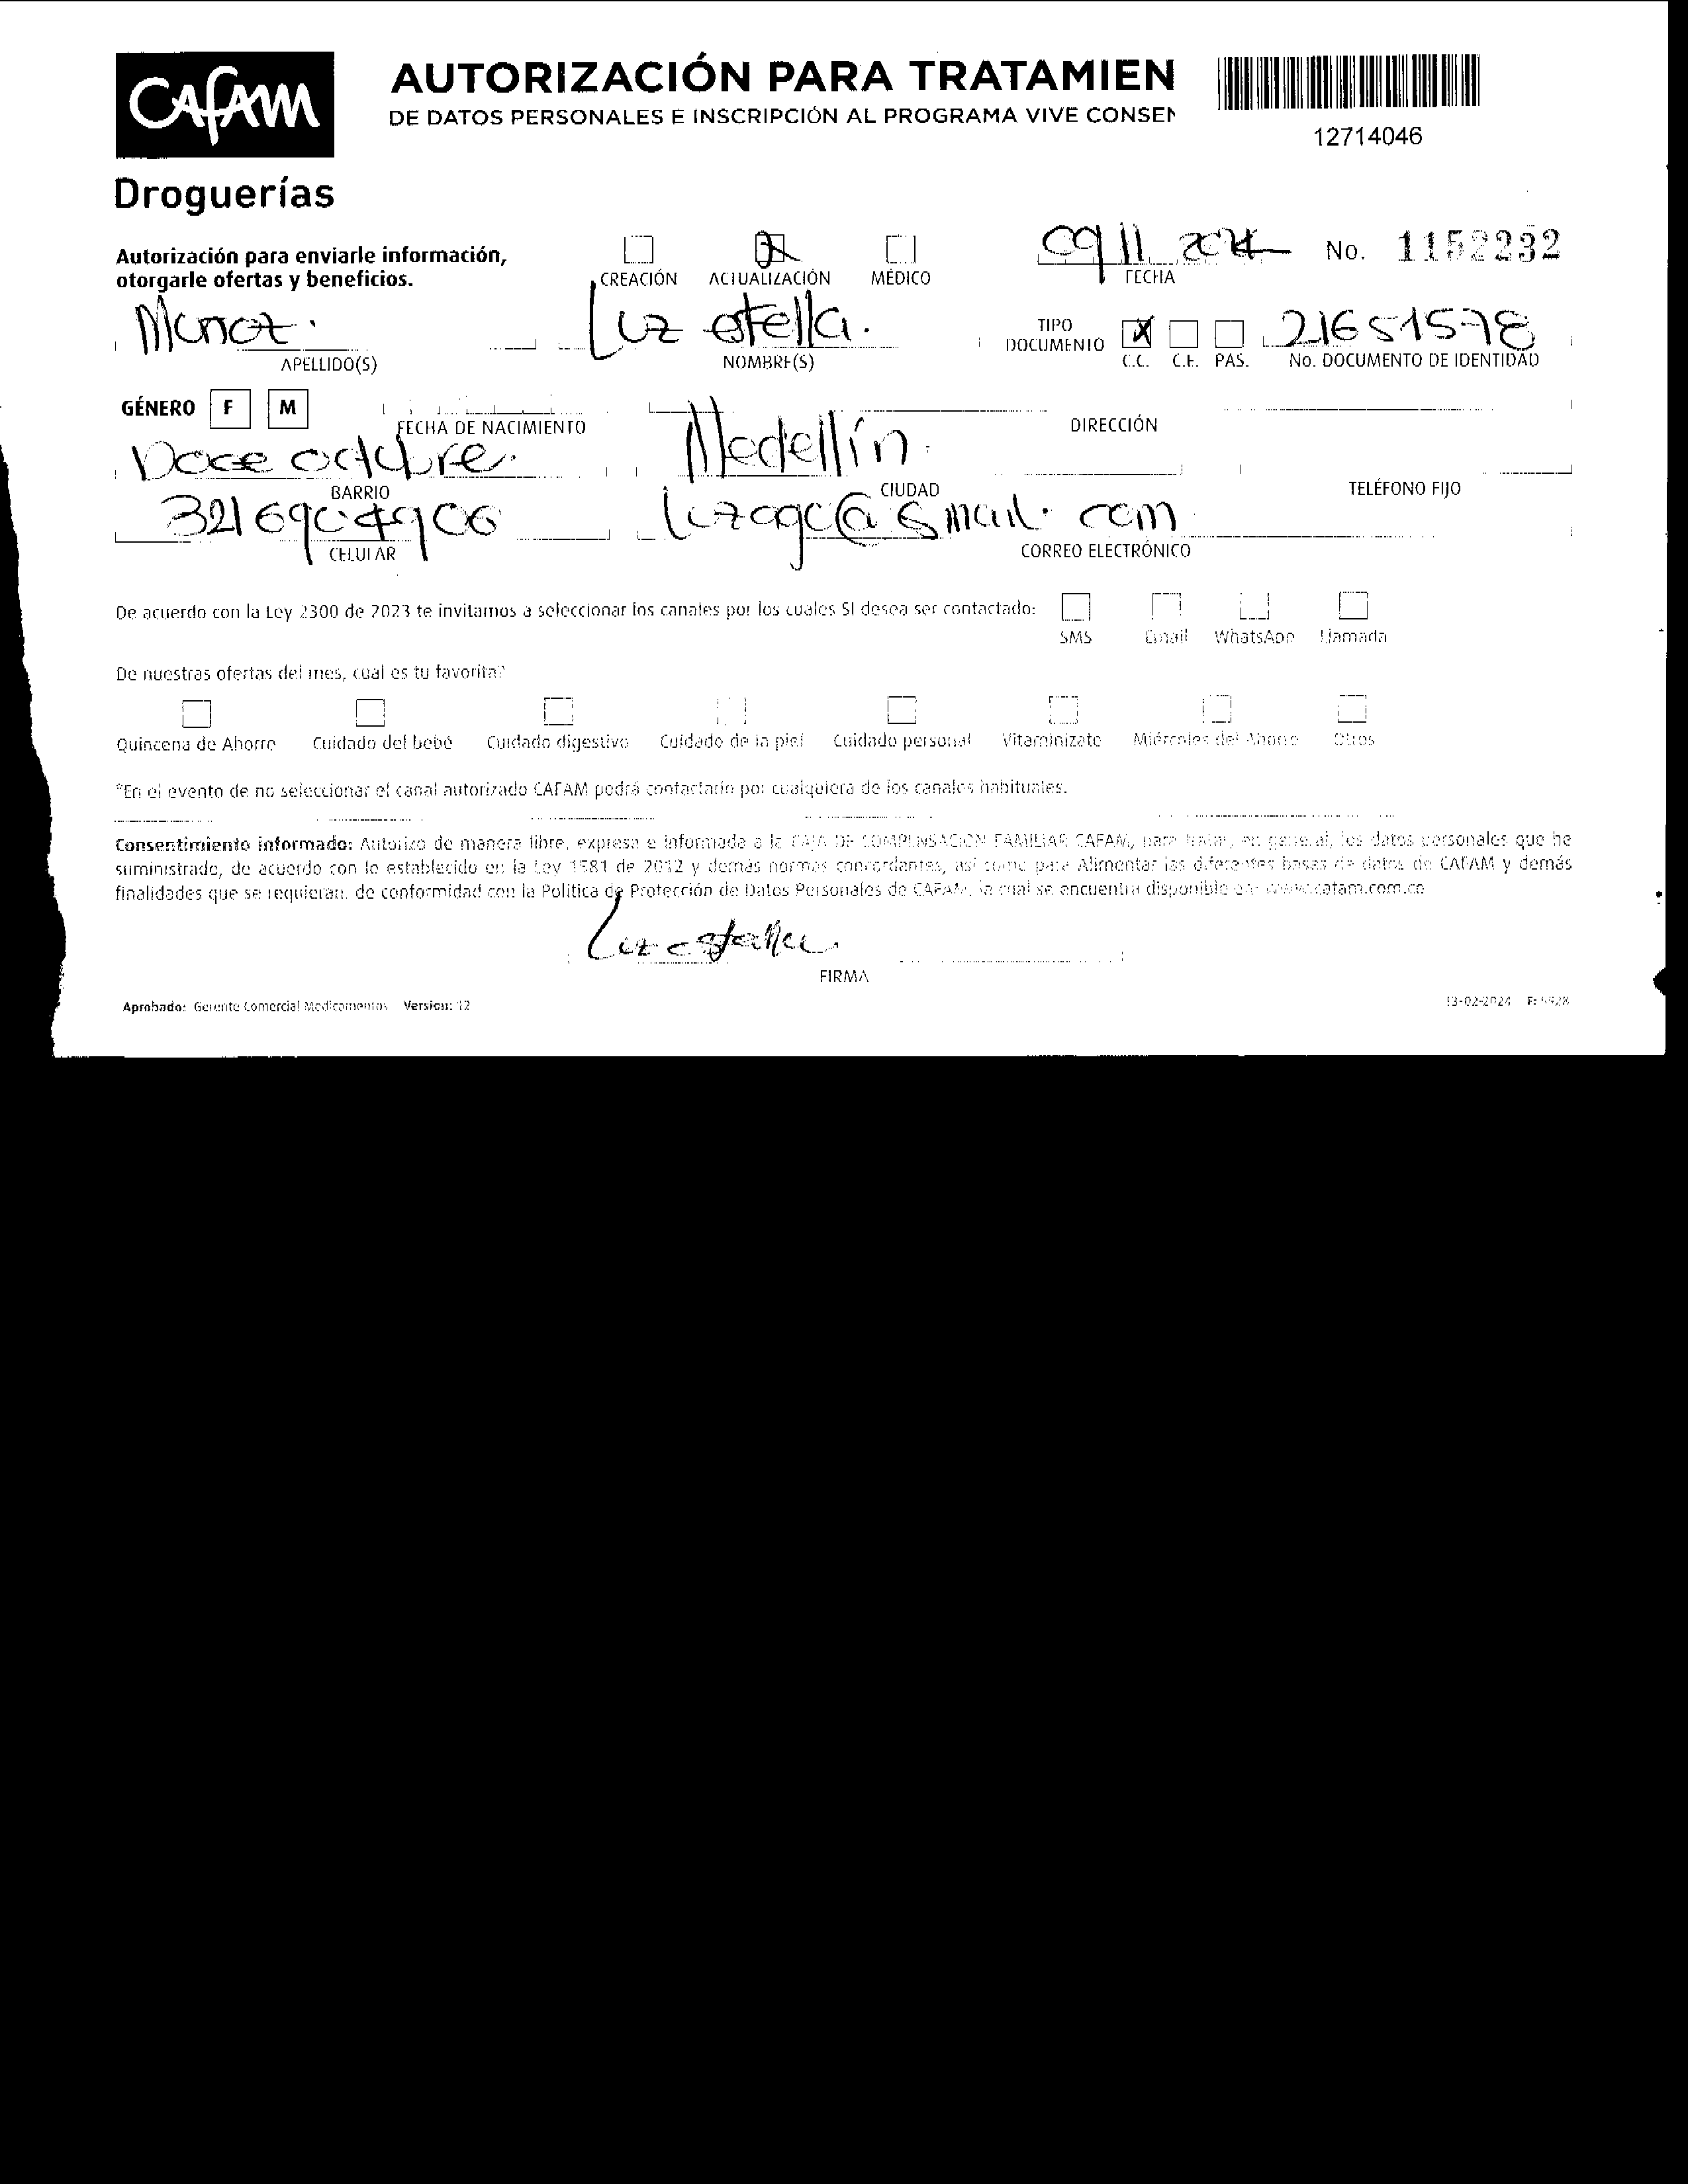 CAFAM
Droguerías
AUTORIZACIÓN PARA TRATAMIEN
DE DATOS PERSONALES E INSCRIPCIÓN AL PROGRAMA VIVE CONSEN
12714046
Autorización para enviarle información,
otorgarle ofertas y beneficios.
CREACIÓN ACTUALIZACIÓN MÉDICO
09 11 2024 No. 1152232
FECHA
Munoz. Luz estella. TIPO DOCUMENTO X 21651578
APELLIDO(S) NOMBRE(S) C.C. C.E. PAS. No. DOCUMENTO DE IDENTIDAD
GÉNERO F M
FECHA DE NACIMIENTO DIRECCIÓN
Doce octubre. Medellín.
BARRIO CIUDAD TELÉFONO FIJO
3216904906 @gmail.com
CELULAR CORREO ELECTRÓNICO
De acuerdo con la Ley 2300 de 2023 te invitamos a seleccionar los canales por los cuales SI desea ser contactado:
SMS Email WhatsApp Llamada
De nuestras ofertas del mes, cual es tu favorita?
Quincena de Ahorro Cuidado del bebé Cuidado digestivo Cuidado de la piel Cuidado personal Vitaminízate Miércoles del Ahorro Otros
*En el evento de no seleccionar el canal autorizado CAFAM podrá contactarlo por cualquiera de los canales habituales.
Consentimiento informado: Autorizo de manera libre, expresa e informada a la CAJA DE COMPENSACIÓN FAMILIAR CAFAM, para tratar, en general, los datos personales que he
suministrado, de acuerdo con lo establecido en la Ley 1581 de 2012 y demás normas concordantes, así como para Alimentar las diferentes bases de datos de CAFAM y demás
finalidades que se requieran, de conformidad con la Política de Protección de Datos Personales de CAFAM, la cual se encuentra disponible en: www.cafam.com.co
Luz estella.
FIRMA
Aprobado: Gerente Comercial Medicamentos Version: 12
13-02-2024